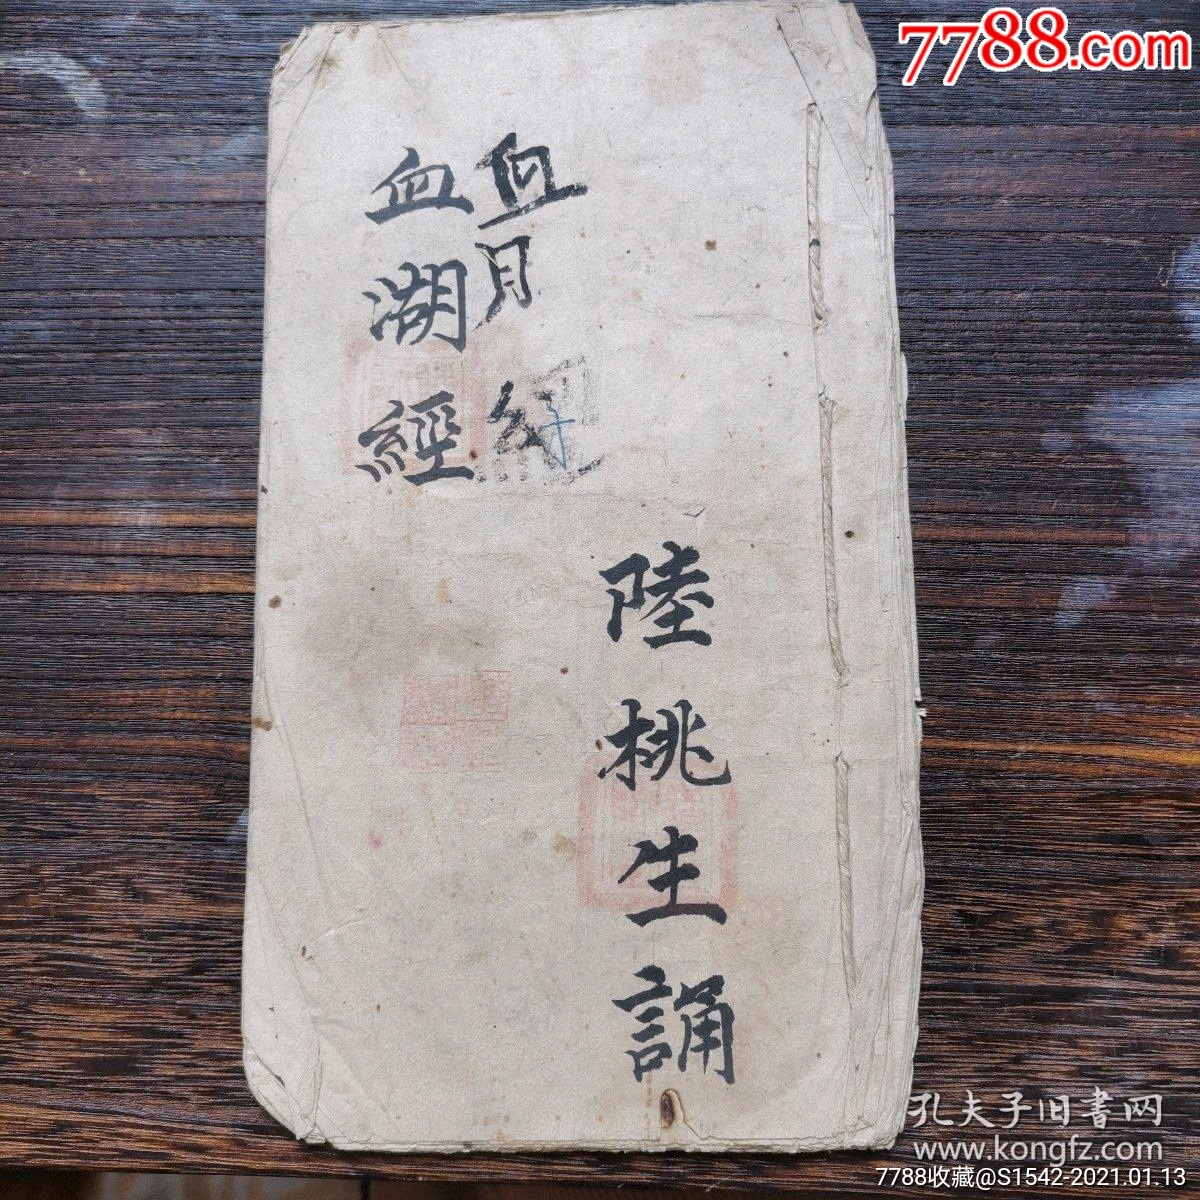 7788.com
血湖經
血月
陸桃生誦
孔夫子旧書网
www.kongfz.com
7788收藏@S1542-2021.01.13